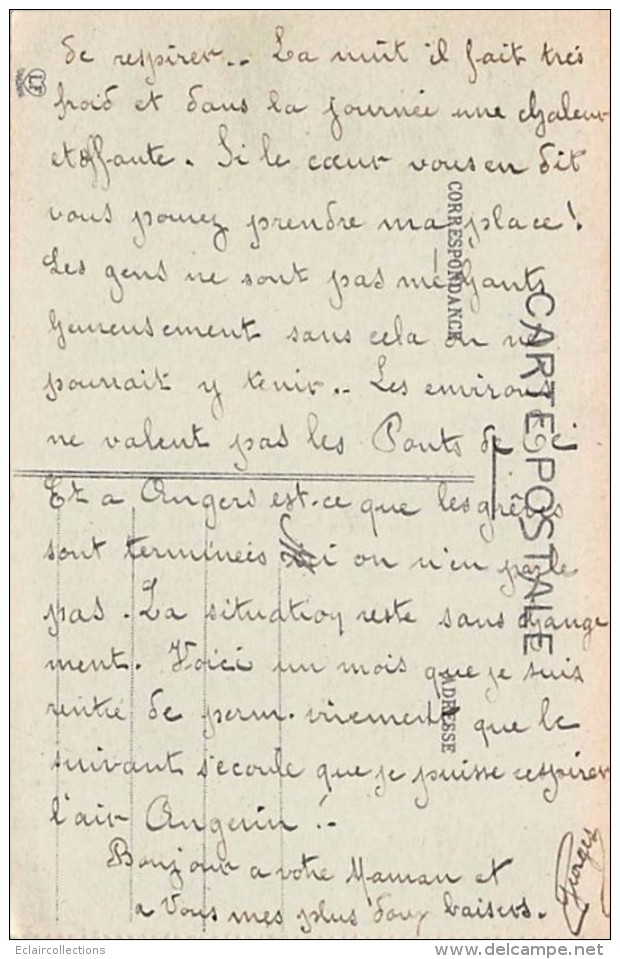 de respirer.. La nuit il fait très
froid et dans la journée une chaleur
etoffante. Si le cœur vous en dit
vous pouvez prendre ma place!
Les gens ne sont pas méchants
heureusement sans cela on ne
pourrait y tenir.. Les environs
ne valent pas les Ponts de Cé!
Et a Angers est-ce que les grèves
sont terminées ici on n'en parle
pas. La situation reste sans change
ment. Voici un mois que je suis
rentré de perm. vivement que le
suivant s'ecoule que je puisse respirer
l'air Angevin!-
Bonjour a votre Maman et
a Vous mes plus doux baisers.
Georges
CORRESPONDANCE
CARTE POSTALE
ADRESSE
Eclaircollections